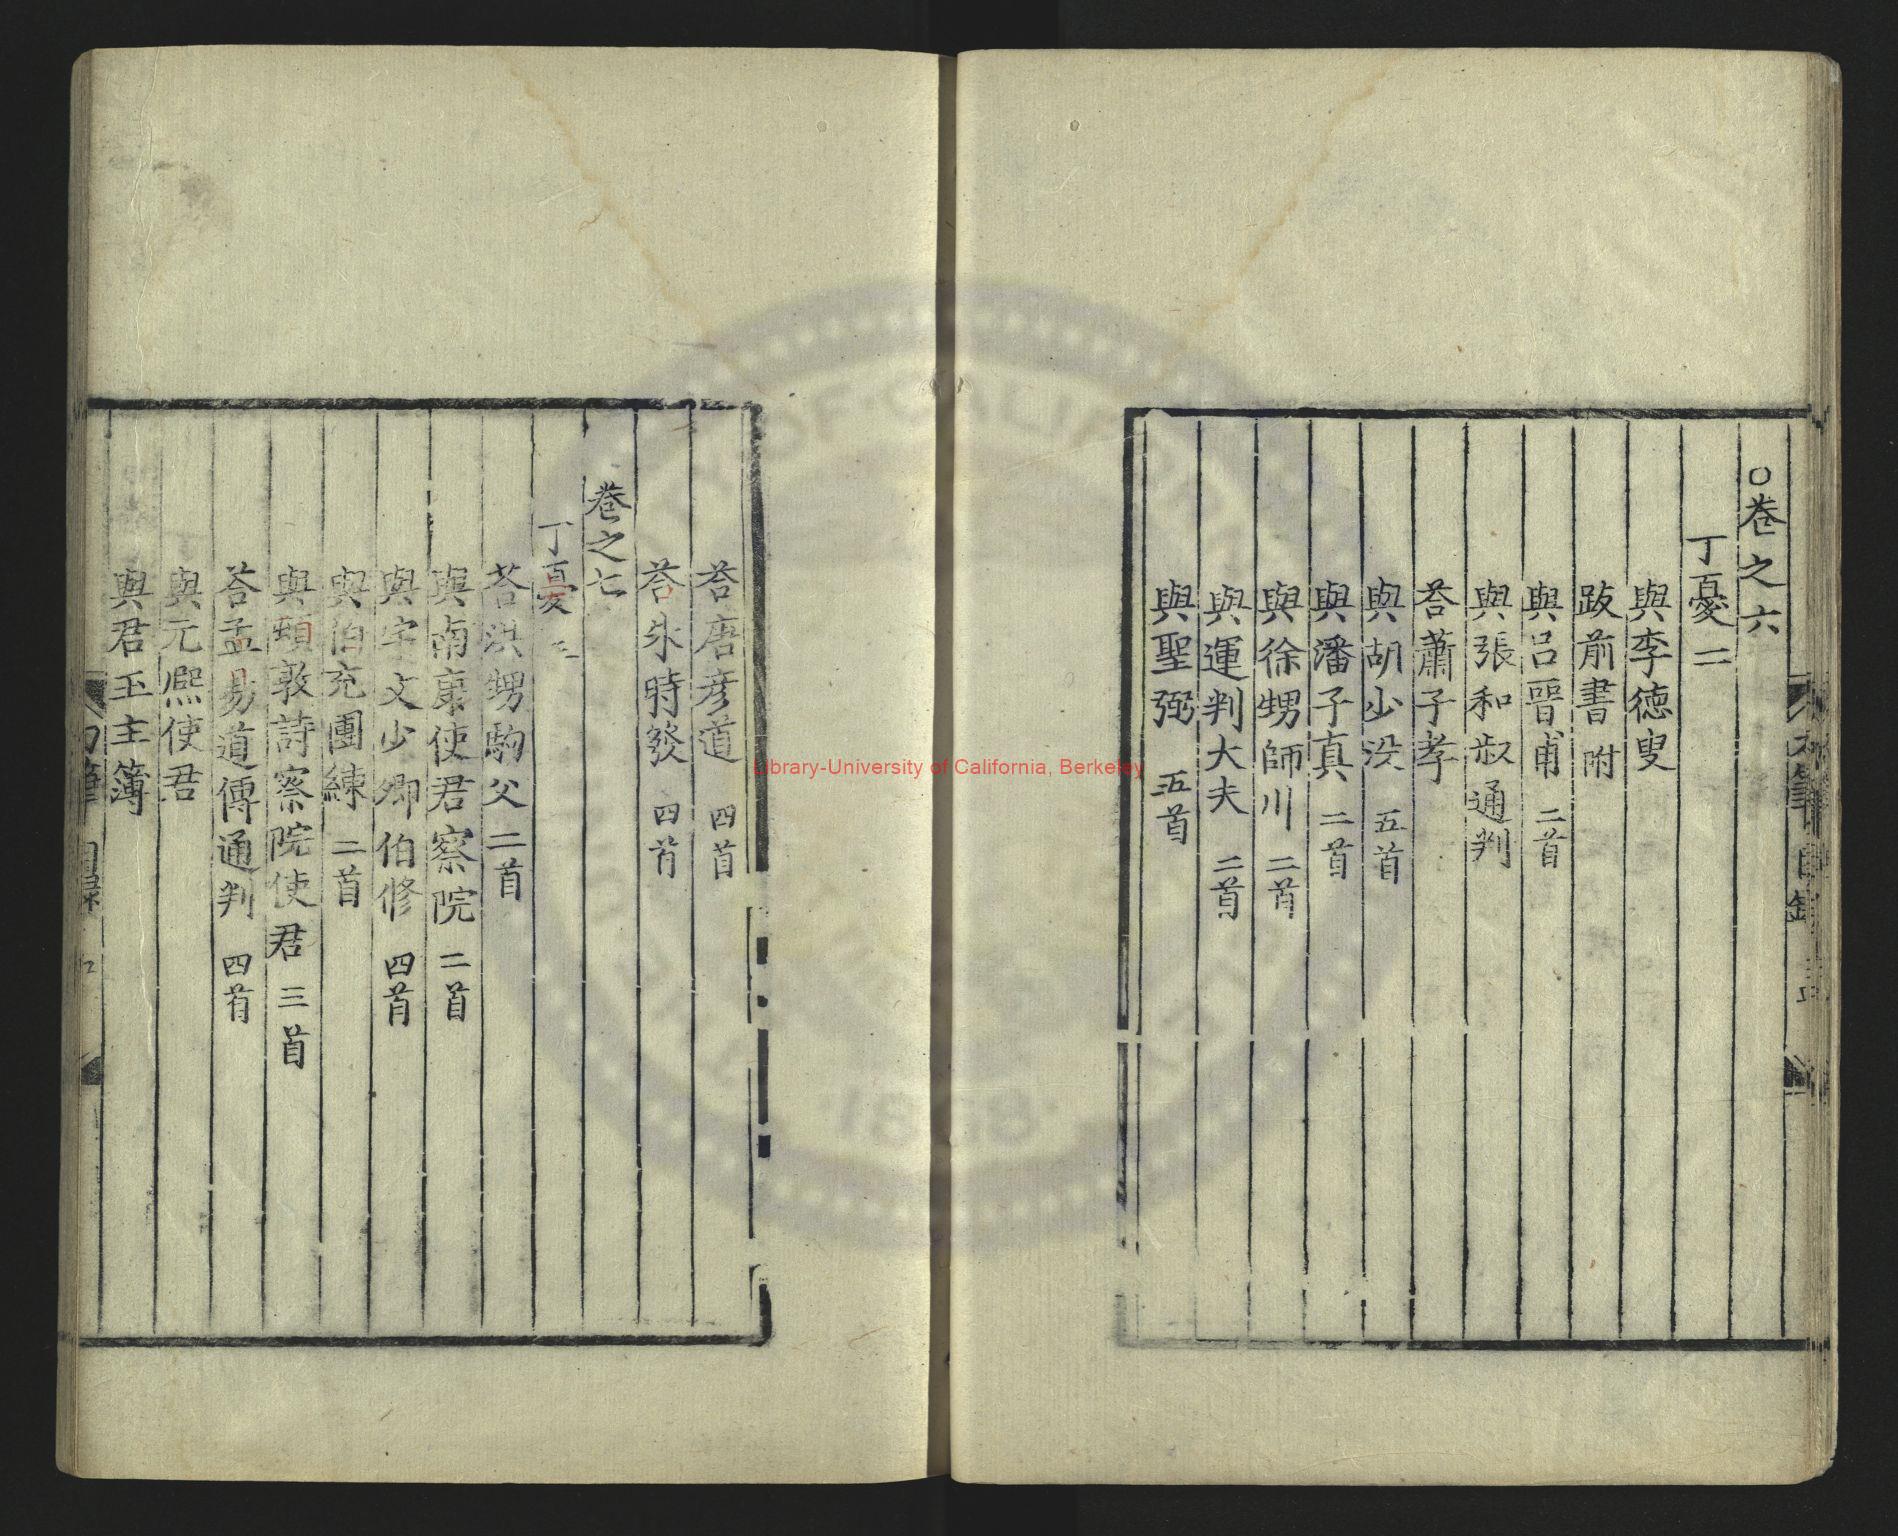 ○卷之六
丁憂二
與李德叟
跋前書 附
與呂晉甫 二首
與張和叔通判
荅蕭子孝
與胡少汲 五首
與潘子真 二首
與徐甥師川 二首
與運判大夫 二首
與聖弼 五首
荅唐彦道 四首
荅朱時發 四首
卷之七
丁憂三
荅洪甥駒父 二首
與南康使君察院 二首
與宇文少卿伯修 四首
與伯充團練 二首
與頓敦詩察院使君 三首
荅孟易道傳通判 四首
與元熙使君
與君玉主簿
Library-University of California, Berkeley